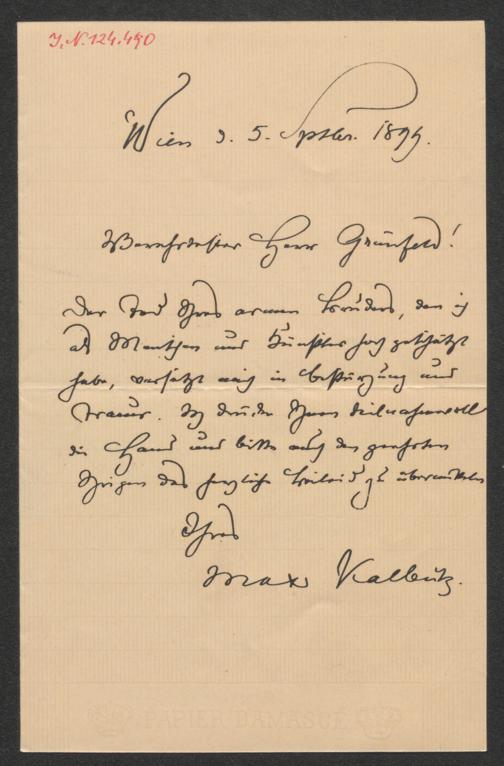 J.N. 124.490
Wien d. 5. Septbr. 1899.
Verehrtester Herr Grünfeld!
Der Tod Ihres armen Bruders, den ich
als Menschen und Künstler hoch geschätzt
habe, versetzt mich in Bestürzung und
Trauer. Ich drücke Ihnen theilnahmsvoll
die Hand und bitte auch den geehrten
Ihrigen das herzliche Beileid zu übermitteln
Ihres
Max Kalbeck.
PAPIER DAMASCÉ